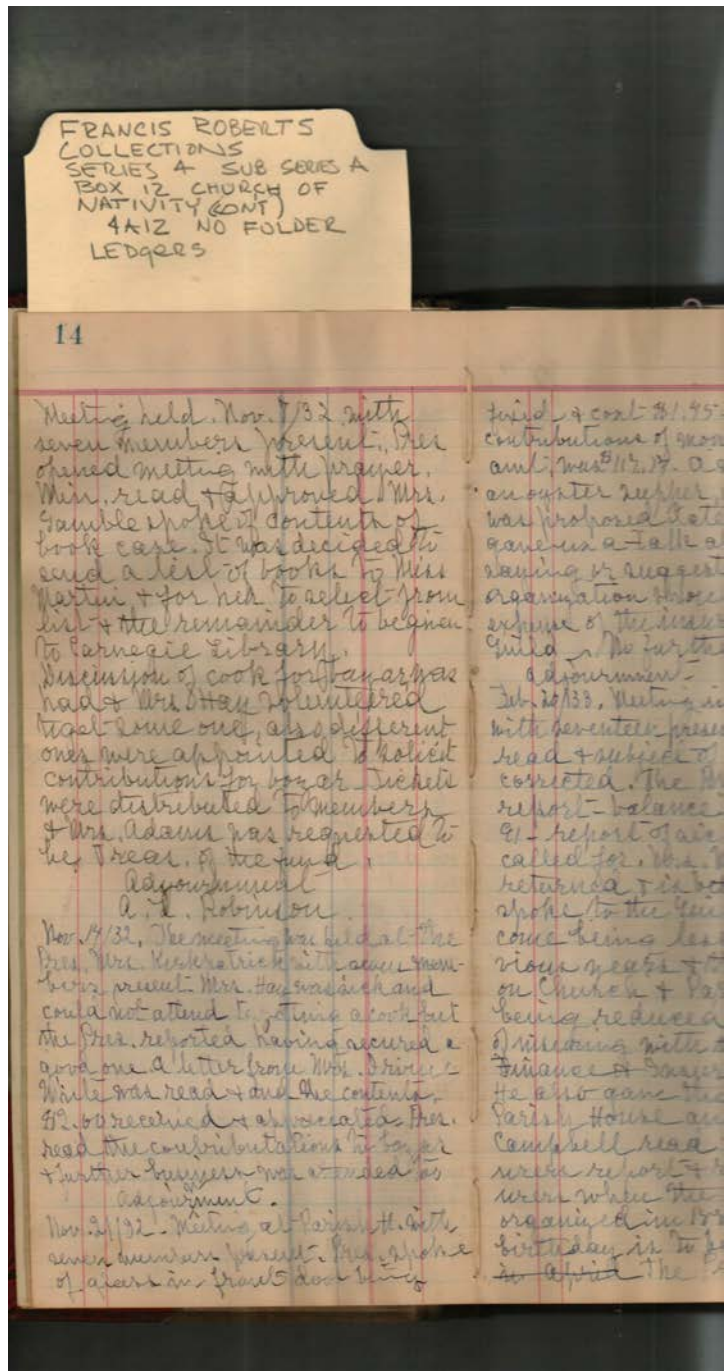 FRANCIS ROBERTS
COLLECTIONS
SERIES 4 SUB SERIES A
BOX 12 CHURCH OF
NATIVITY (CONT)
4A12 NO FOLDER
LEDgERS
14
Meeting held. Nov. 7/32 with
seven members present. Pres
opened meeting with prayer.
Min. read & approved. Mrs.
Gamble spoke of contents of
book case. It was decided to
send a list of books to Miss
Martin & for her to select from
list & the remainder to be given
to Carnegie Library.
Discussion of cook for bazar was
had & Mrs. Hay volunteered
to get some one, also different
ones were appointed to solicit
contributions for bozar. Tickets
were distributed to members
& Mrs. Adams was requested to
be Treas. of the fund.
Adjournment
A. L. Robinson.
Nov. 14/32. The meeting was held at the
Pres. Mrs. Kirkpatrick with seven mem-
bers present. Mrs. Hay was sick and
could not attend to getting a cook but
the Pres. reported having secured a
good one. A letter from Mrs.
White was read & and the contents
$2.00 received & appreciated. Pres.
read the contributations to bozar
& further business was attended to
Adjourment.
Nov. 21/32. Meeting at Parish H. with
seven members present. Pres. spoke
of glass in front door being
fixed & cost $1.95
contributions of
amt. was $112.17.
an oyster supper
was proposed
gave us a talk
saying or suggest
organization
expense of the
Guild. No furthe
adjournment
Feb. 20/33. Meeting
with seventeen presen
read & subject of
corrected. The
report - balance
91 - report of
called for. Mrs.
returned & is
spoke to the
come being less
vious years &
on Church & Par
being reduced
of insuring with
Finance &
He also gave the
Parish House an
Campbell read
urers report &
urers when the
organized in
birthday is to
in April The